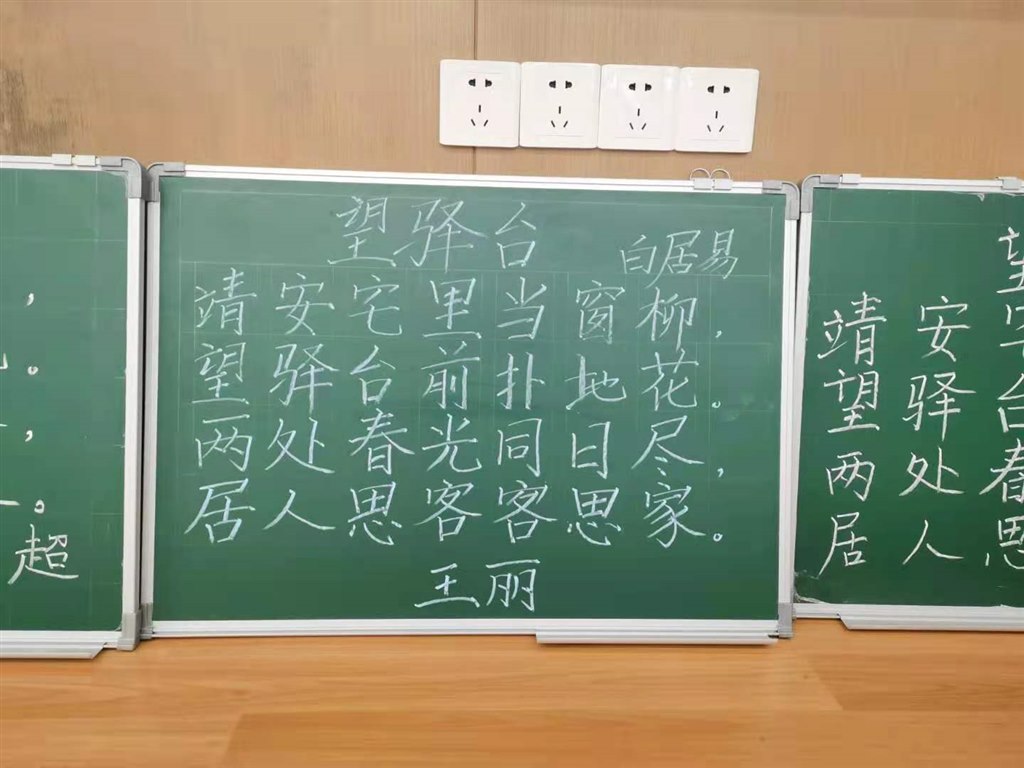 望驿台
白居易
靖安宅里当窗柳，
望驿台前扑地花。
两处春光同日尽，
居人思客客思家。
王丽
，
。
，
。
超
望
靖安宅
望驿台
两处春
居人思